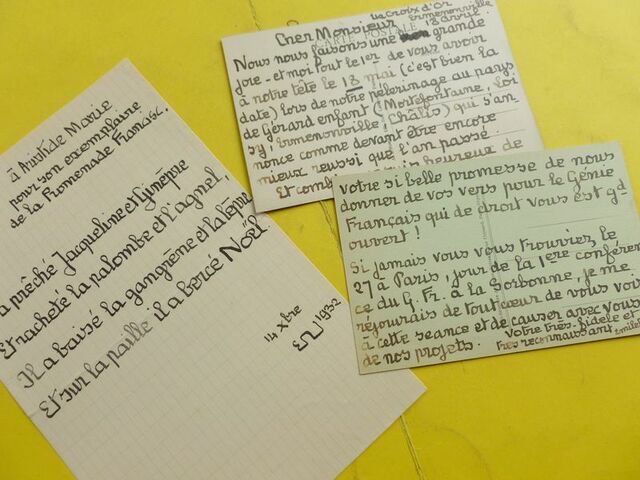 à Aristide Marie
pour son exemplaire
de la Promenade Francisc.
a prêché Jacqueline et Gunépre
Et racheté la palombe et l'agnel,
Il a baisé la gangrène et la lèpre
Et sur la paille il a bercé Noël
14 Xbre
1932
La Croix d'Or
Ermenonville
13 avril
CARTE POSTALE
Cher Monsieur
Nous nous faisons une grande
joie - et moi tout le 1er de vous avoir
à notre tête le 18 mai (c'est bien la
date) lors de notre pèlerinage au pays
de Gérard enfant (Mortefontaine, Loi
sy, Ermenonville, Châlis) qui s'an
nonce comme devant être encore
mieux réussi que l'an passé.
Et heureux de
votre si belle promesse de nous
donner de vos vers pour le Génie
Français qui de droit vous est gd
ouvert !
Si jamais vous vous trouviez, le
27 à Paris, jour de la 1ère conféren
ce du G. Fr. à la Sorbonne, je me
réjouirais de tout cœur de vous voir
à cette séance et de causer avec vous
de nos projets.
Votre très fidèle et
très reconnaissant